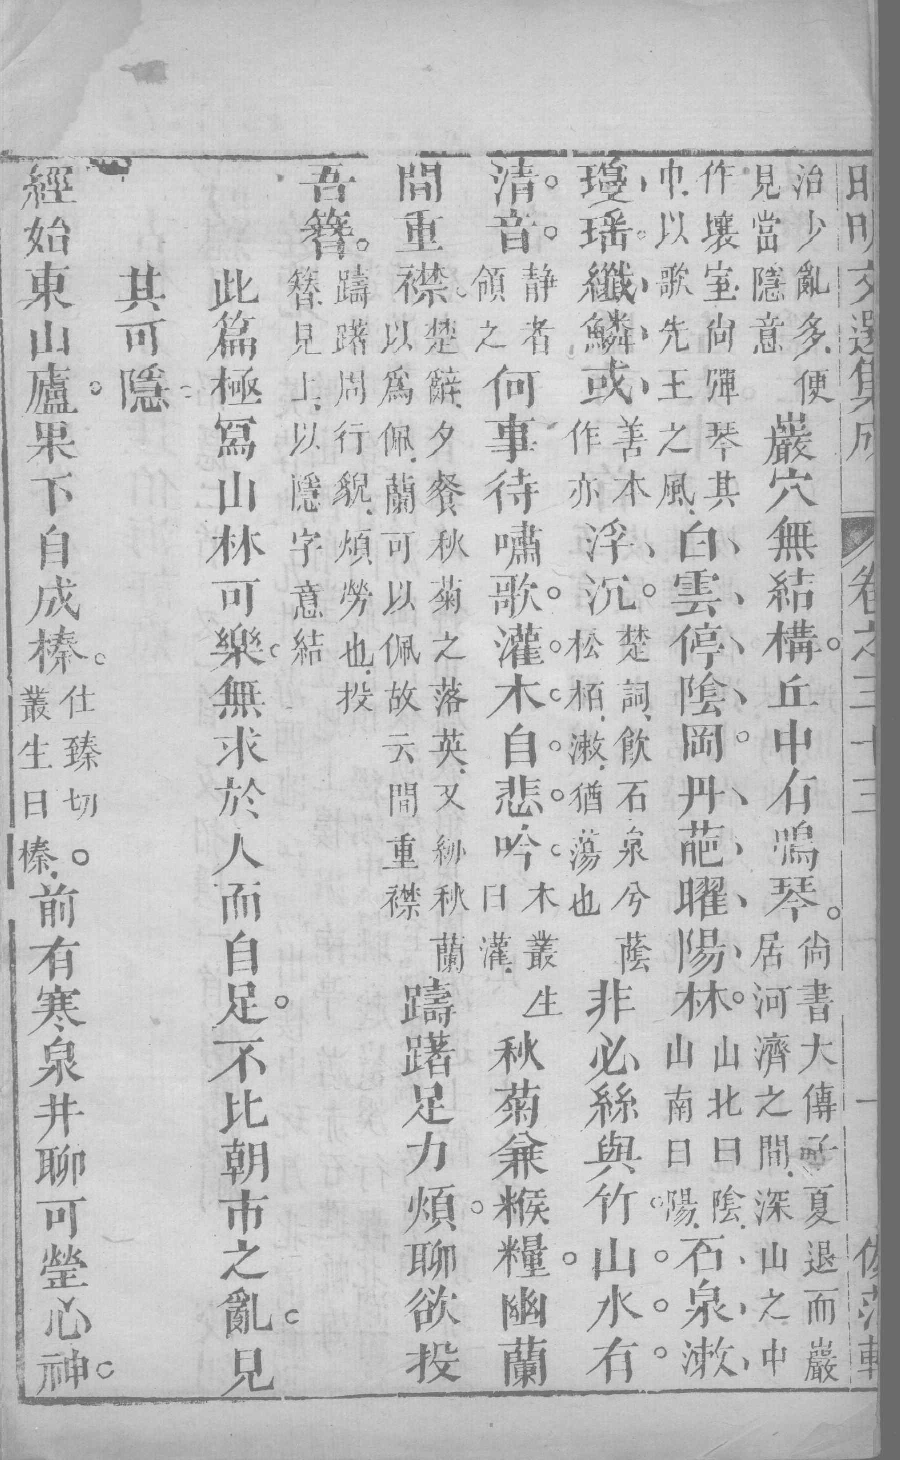 治少亂多便見當隱意巖穴無結構丘中有鳴琴尚書大傳子夏退而巖居河濟之間深山之中
作壤室尚彈琴其中以歌先王之風白雲停陰岡丹葩曜陽林山北曰陰山南曰陽石泉漱
瓊瑶纖鱗或善本作亦浮沉楚詞飲石泉兮蔭松栢漱猶蕩也非必絲與竹山水有
清音静者領之何事待嘯歌灌木自悲吟木叢生曰灌秋菊兼糇糧幽蘭
間重襟楚辭夕餐秋菊之落英又紉秋蘭以爲佩蘭可以佩故云間重襟躊躇足力煩聊欲投
吾簪躊躇周行貌煩勞也投簪見上以隱字意結
此篇極寫山林可樂無求於人而自足不比朝市之亂見
其可隱
經始東山廬果下自成榛仕臻切叢生曰榛前有寒泉井聊可瑩心神
文選集成 卷之三十三 一